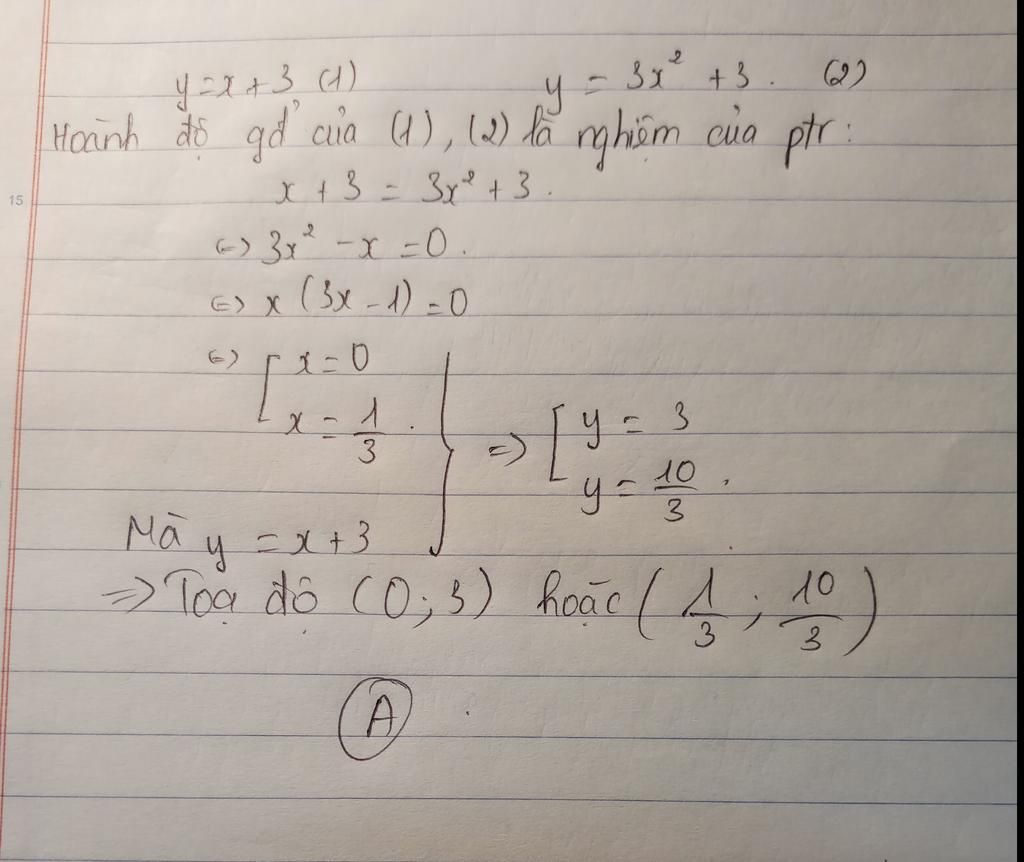 15
y = x + 3 (1) y = 3x² + 3. (2)
Hoành độ gđ của (1), (2) là nghiệm của ptr:
x + 3 = 3x² + 3.
<=> 3x² - x = 0.
<=> x (3x - 1) = 0
<=> [ x = 0
x = 1/3 . } => [ y = 3
y = 10/3 .
Mà y = x + 3
=> Toạ độ (0; 3) hoặc (1/3; 10/3)
A